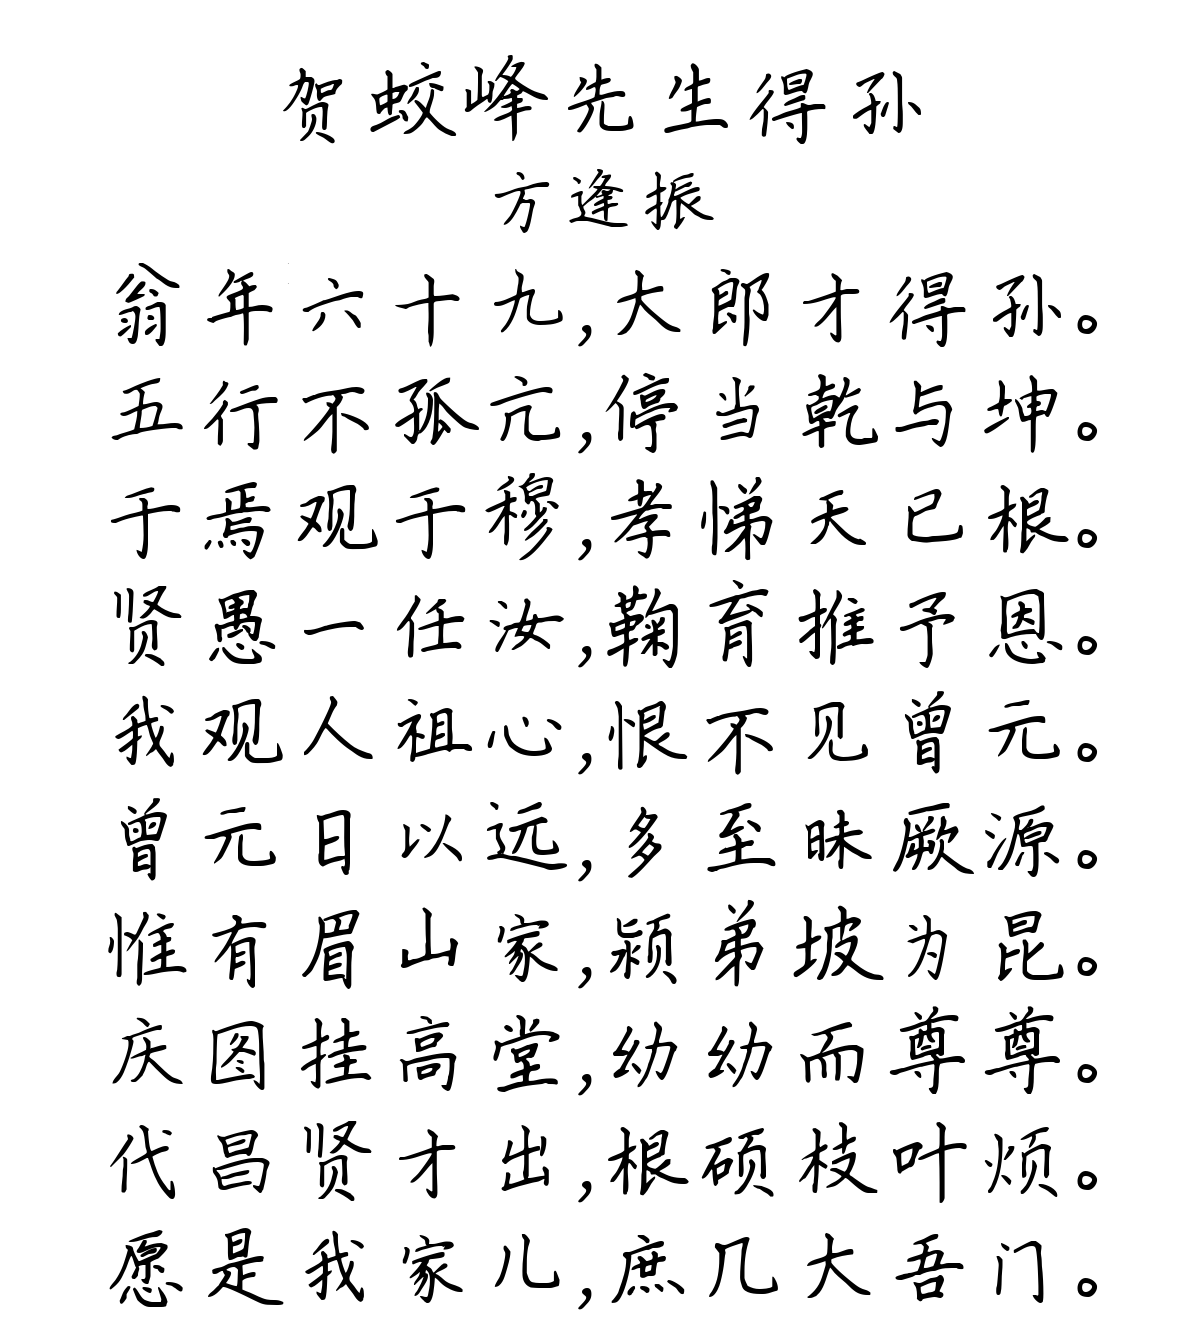 贺蛟峰先生得孙
方逢振
翁年六十九,大郎才得孙。
五行不孤亢,停当乾与坤。
于焉观于穆,孝悌天已根。
贤愚一任汝,鞠育推予恩。
我观人祖心,恨不见曾元。
曾元日以远,多至昧厥源。
惟有眉山家,颍弟坡为昆。
庆图挂高堂,幼幼而尊尊。
代昌贤才出,根硕枝叶烦。
愿是我家儿,庶几大吾门。